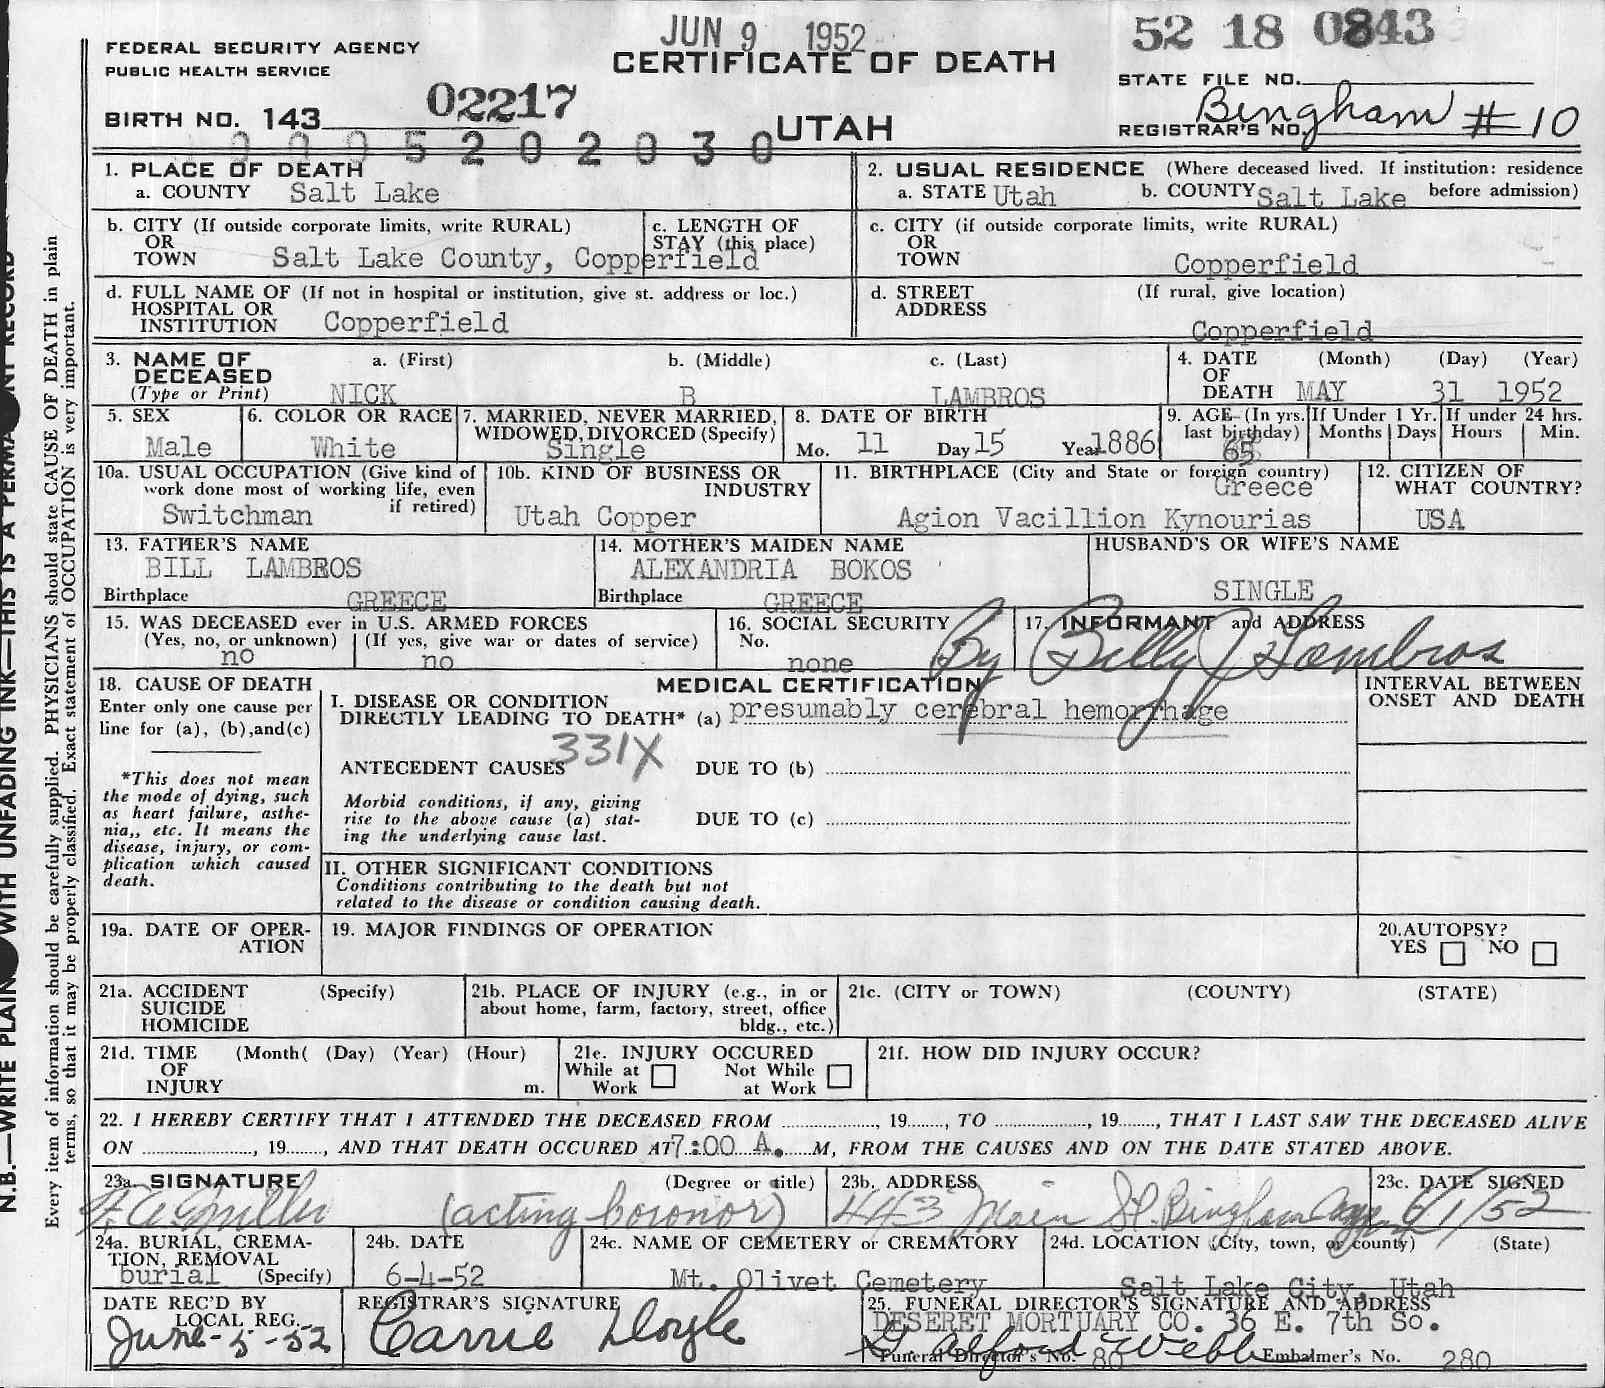 JUN 9 1952
52 18 0843
FEDERAL SECURITY AGENCY
PUBLIC HEALTH SERVICE
CERTIFICATE OF DEATH
STATE FILE NO.
BIRTH NO. 143 02217
UTAH
REGISTRAR'S NO. Bingham #10
0 0 5 2 0 2 0 3 0
1. PLACE OF DEATH
a. COUNTY Salt Lake
2. USUAL RESIDENCE (Where deceased lived. If institution: residence before admission)
a. STATE Utah b. COUNTY Salt Lake
b. CITY (If outside corporate limits, write RURAL)
OR
TOWN Salt Lake County, Copperfield
c. LENGTH OF
STAY (this place)
c. CITY (if outside corporate limits, write RURAL)
OR
TOWN Copperfield
d. FULL NAME OF (If not in hospital or institution, give st. address or loc.)
HOSPITAL OR
INSTITUTION Copperfield
d. STREET (If rural, give location)
ADDRESS
Copperfield
3. NAME OF DECEASED
(Type or Print)
a. (First) b. (Middle) c. (Last)
NICK B LAMBROS
4. DATE OF DEATH (Month) (Day) (Year)
MAY 31 1952
5. SEX
Male
6. COLOR OR RACE
White
7. MARRIED, NEVER MARRIED,
WIDOWED, DIVORCED (Specify)
Single
8. DATE OF BIRTH
Mo. 11 Day 15 Year 1886
9. AGE (In yrs. last birthday)
65
If Under 1 Yr.
Months Days
If under 24 hrs.
Hours Min.
10a. USUAL OCCUPATION (Give kind of
work done most of working life, even
if retired)
Switchman
10b. KIND OF BUSINESS OR
INDUSTRY
Utah Copper
11. BIRTHPLACE (City and State or foreign country)
Greece
Agion Vacillion Kynourias
12. CITIZEN OF
WHAT COUNTRY?
USA
13. FATHER'S NAME
BILL LAMBROS
Birthplace GREECE
14. MOTHER'S MAIDEN NAME
ALEXANDRIA BOKOS
Birthplace GREECE
HUSBAND'S OR WIFE'S NAME
SINGLE
15. WAS DECEASED ever in U.S. ARMED FORCES
(Yes, no, or unknown) (If yes, give war or dates of service)
no no
16. SOCIAL SECURITY
No.
none
17. INFORMANT and ADDRESS
By Billy J Lambros
18. CAUSE OF DEATH
Enter only one cause per
line for (a), (b),and(c)
*This does not mean
the mode of dying, such
as heart failure, asthe-
nia,, etc. It means the
disease, injury, or com-
plication which caused
death.
MEDICAL CERTIFICATION
I. DISEASE OR CONDITION
DIRECTLY LEADING TO DEATH* (a) presumably cerebral hemorrhage
331X
ANTECEDENT CAUSES DUE TO (b)
Morbid conditions, if any, giving
rise to the above cause (a) stat-
ing the underlying cause last.
DUE TO (c)
II. OTHER SIGNIFICANT CONDITIONS
Conditions contributing to the death but not
related to the disease or condition causing death.
INTERVAL BETWEEN
ONSET AND DEATH
19a. DATE OF OPER-
ATION
19. MAJOR FINDINGS OF OPERATION
20. AUTOPSY?
YES NO
21a. ACCIDENT (Specify)
SUICIDE
HOMICIDE
21b. PLACE OF INJURY (e.g., in or
about home, farm, factory, street, office
bldg., etc.)
21c. (CITY or TOWN) (COUNTY) (STATE)
21d. TIME (Month( (Day) (Year) (Hour)
OF
INJURY m.
21e. INJURY OCCURED
While at Work Not While at Work
21f. HOW DID INJURY OCCUR?
22. I HEREBY CERTIFY THAT I ATTENDED THE DECEASED FROM ..............., 19......, TO ..............., 19......, THAT I LAST SAW THE DECEASED ALIVE
ON ................., 19......., AND THAT DEATH OCCURED AT 7:00 A. M, FROM THE CAUSES AND ON THE DATE STATED ABOVE.
23a. SIGNATURE (Degree or title)
(acting Coronor)
23b. ADDRESS
443 Main St. Bingham
23c. DATE SIGNED
6/1/52
24a. BURIAL, CREMA-
TION, REMOVAL
burial (Specify)
24b. DATE
6-4-52
24c. NAME OF CEMETERY or CREMATORY
Mt. Olivet Cemetery
24d. LOCATION (City, town, or county) (State)
Salt Lake City, Utah
DATE REC'D BY
LOCAL REG.
June-5-52
REGISTRAR'S SIGNATURE
Carrie Doyle
25. FUNERAL DIRECTOR'S SIGNATURE AND ADDRESS
DESERET MORTUARY CO. 36 E. 7th So.
Alford Webb
Funeral Director's No. 80 Embalmer's No. 280
Every item of information should be carefully supplied. PHYSICIANS should state CAUSE OF DEATH in plain
terms, so that it may be properly classified. Exact statement of OCCUPATION is very important.